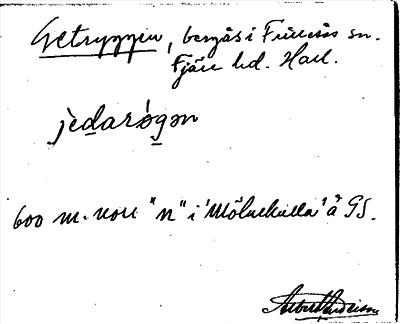 Getryggen, bergås i Frillesås sn.
Fjäre hd. Hall.
jèdarógən
600 m. norr "n" i 'Mölnekulla' å GS.